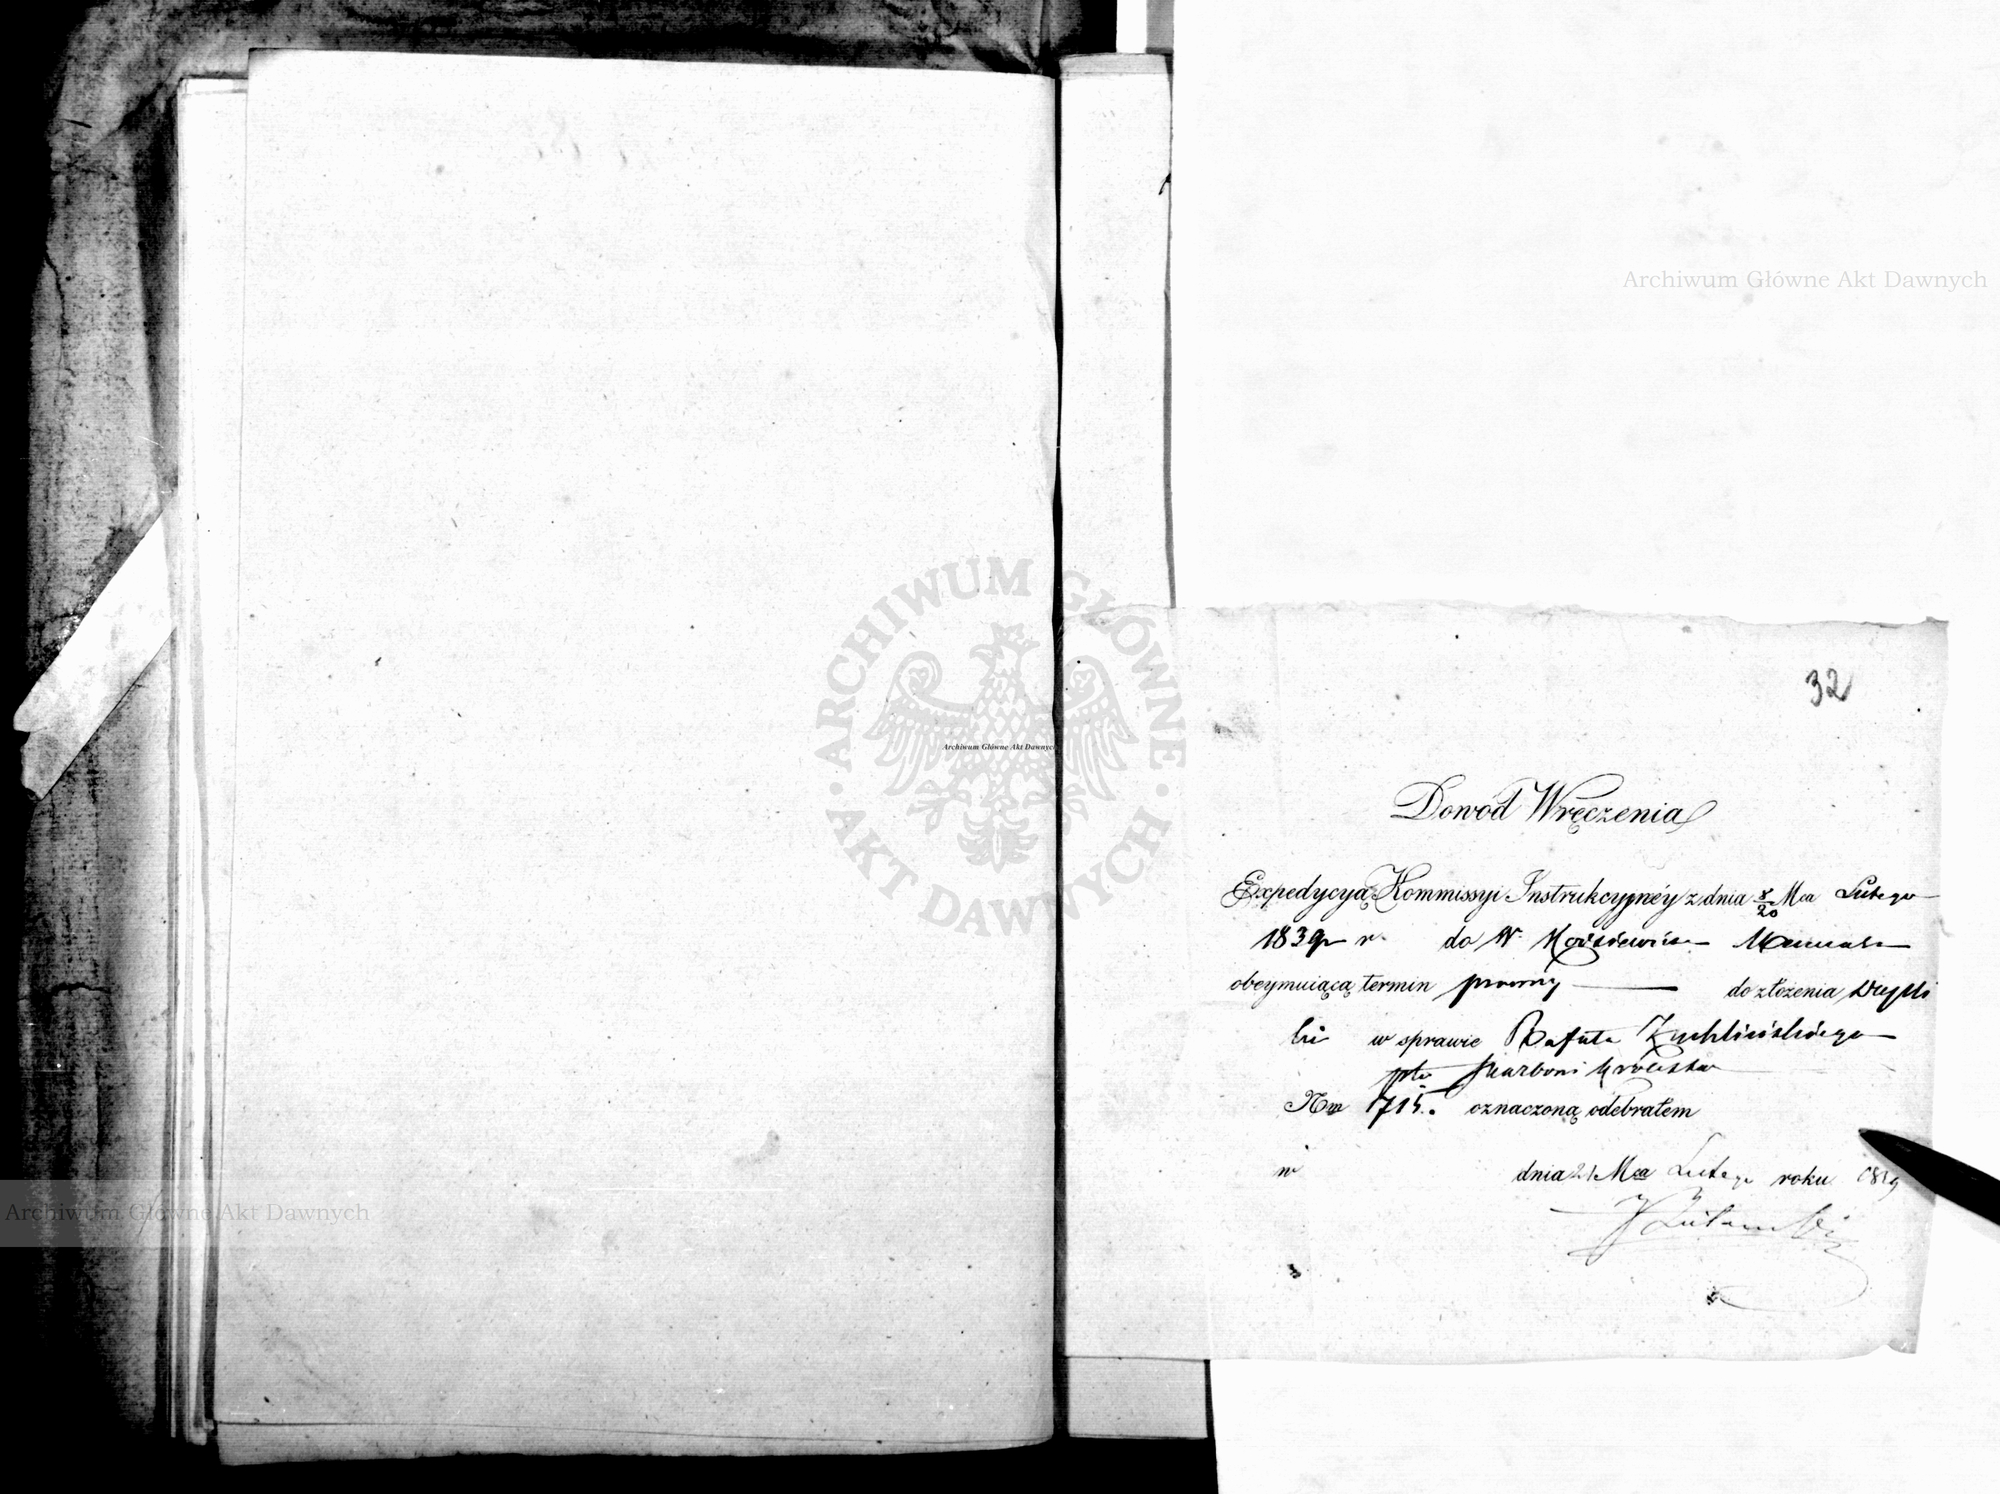 32
Dowód Wręczenia
Expedycyą Kommissyi Instrukcyynéy z dnia 8/20 Mca Lutego
1839 r. do W.
obeymuiącą termin prawny do złożenia Dupli
ki w sprawie Rafała Zychlińskiego
pto Skarbowi Królestwa
Nro 715. oznaczoną odebrałem
w dnia 21 Mca Lutego roku 1839
Archiwum Główne Akt Dawnych
ARCHIWUM GŁÓWNE AKT DAWNYCH
Archiwum Główne Akt Dawnych
Archiwum Główne Akt Dawnych